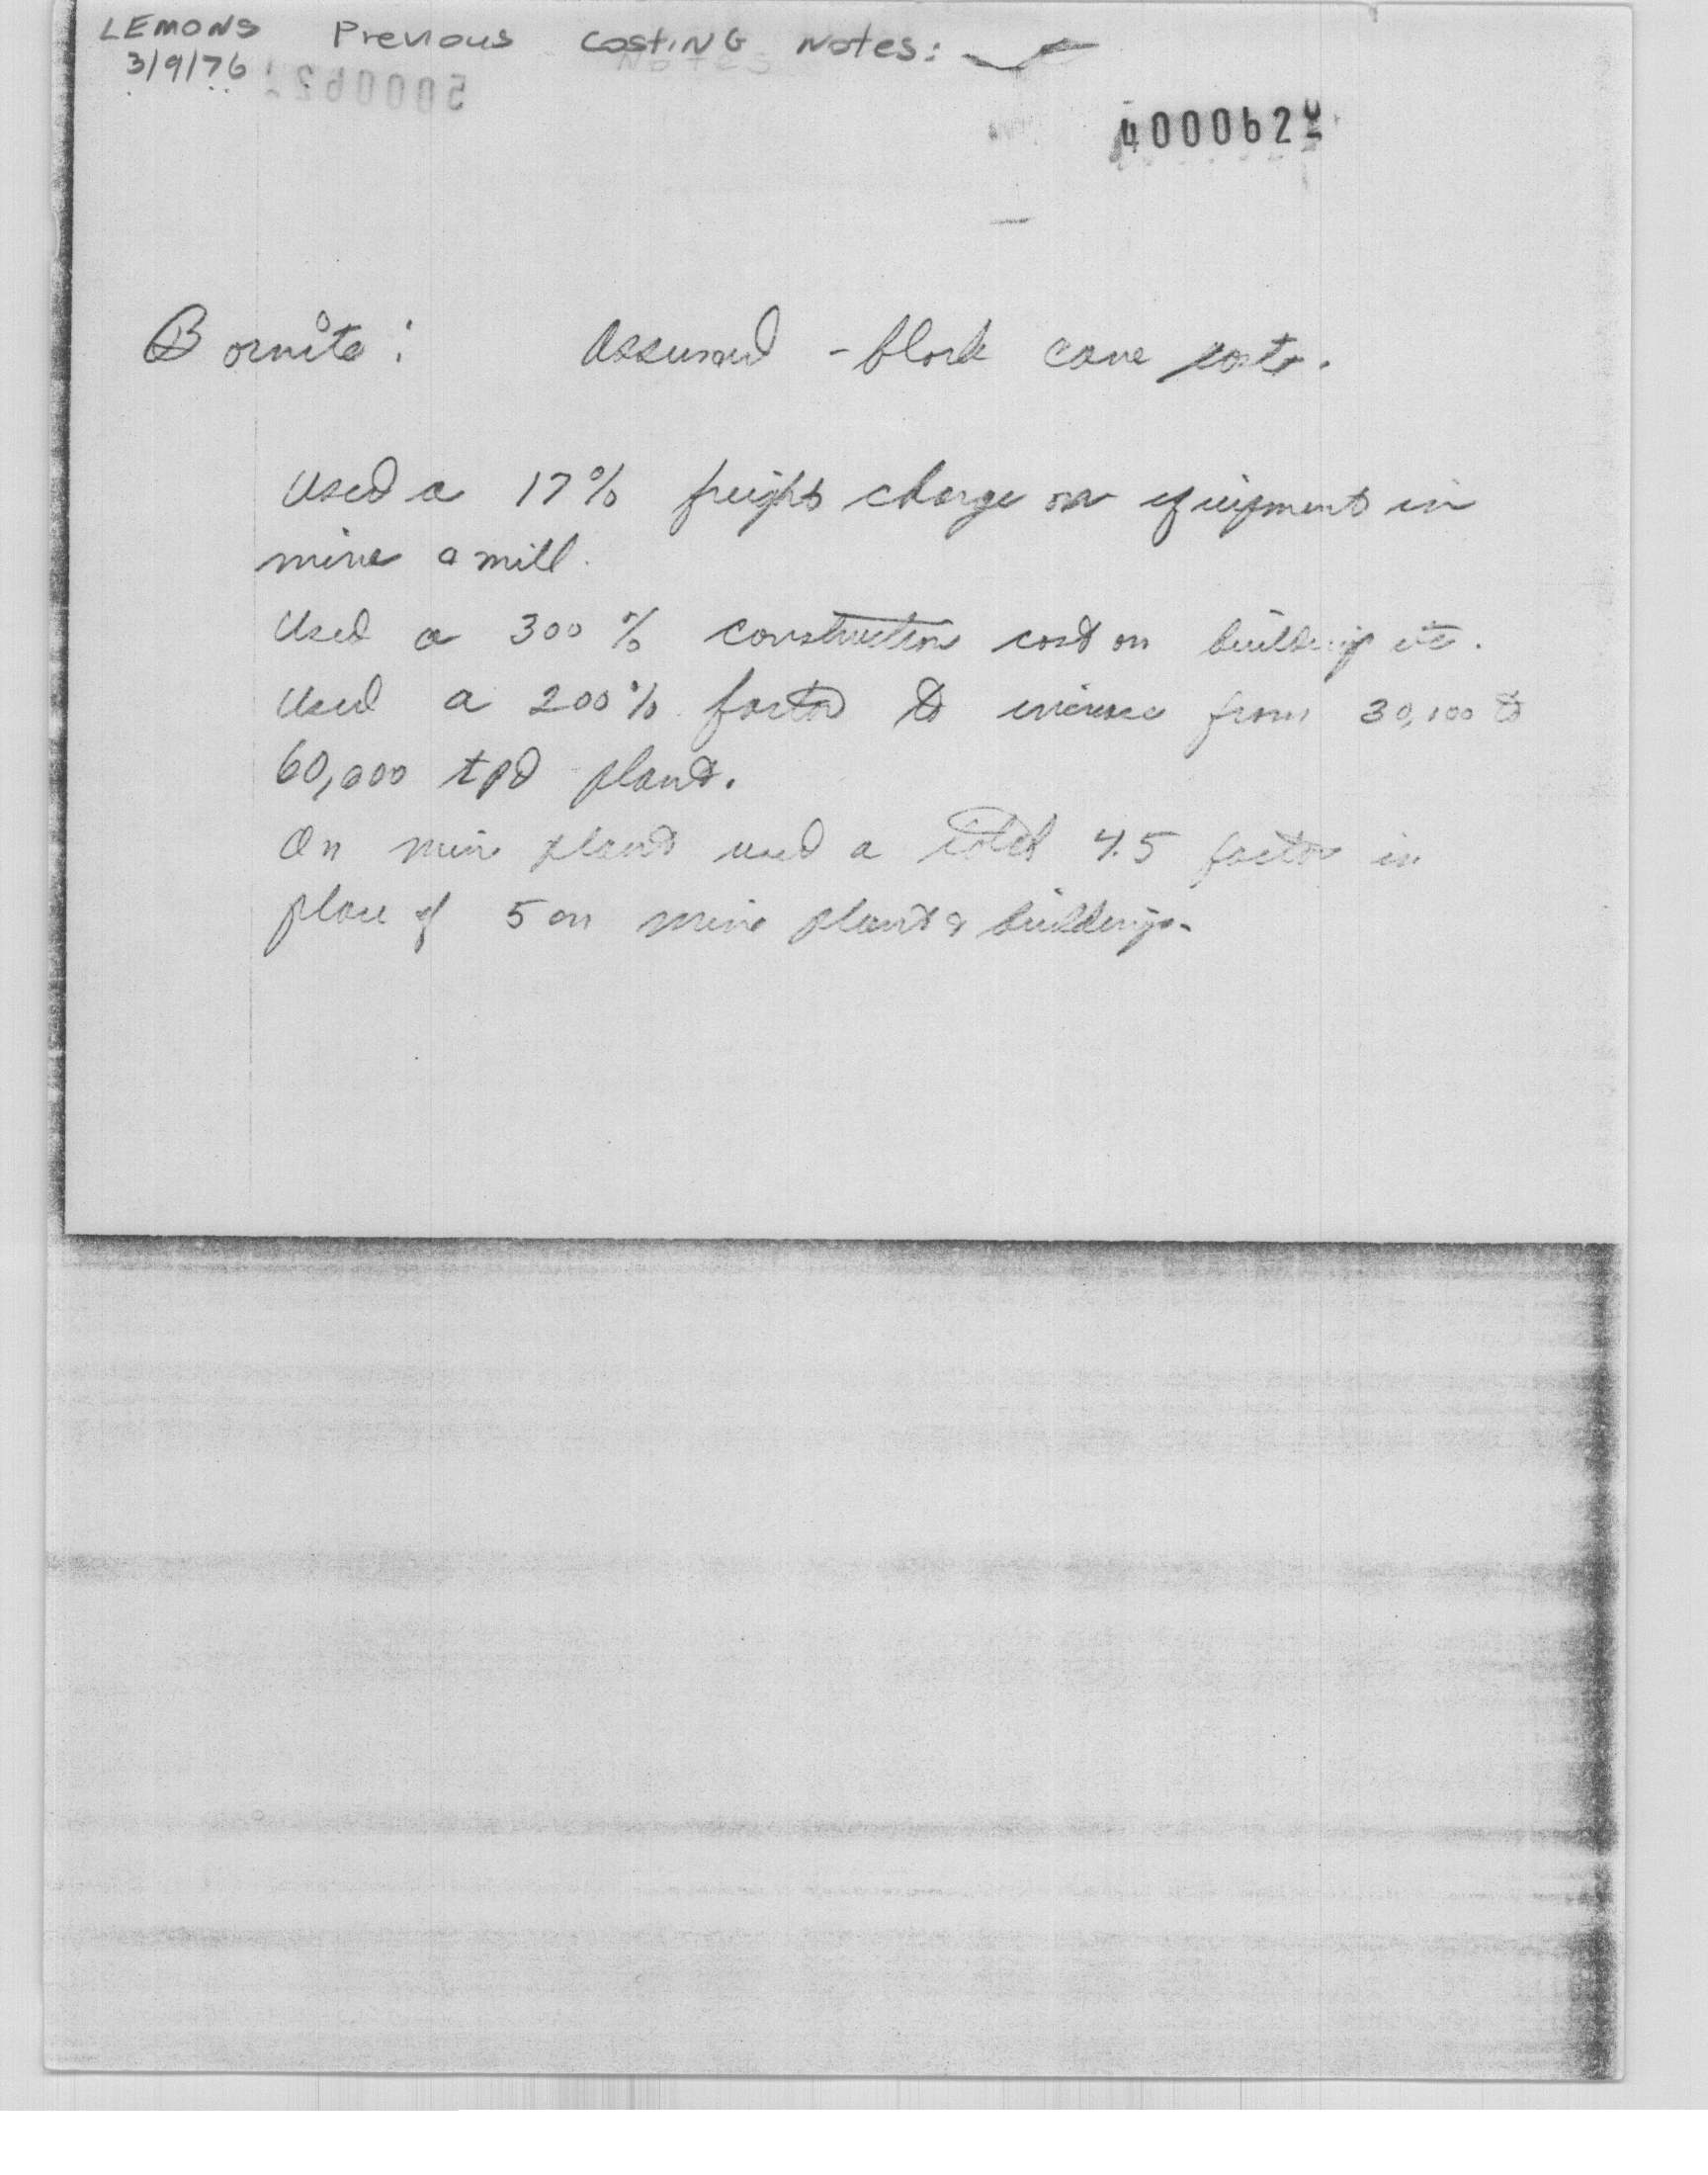 LEMONS Previous Costing Notes:
3/9/76
400062
Bornite: Assumed - block cave costs.
Used a 17% freight charge on equipment in
mine & mill.
Used a 300% construction cost on buildings etc.
Used a 200% factor to increase from 30,100 to
60,000 tpd plant.
On mine plant used a total 4.5 factor in
place of 5 on mine plant & buildings.